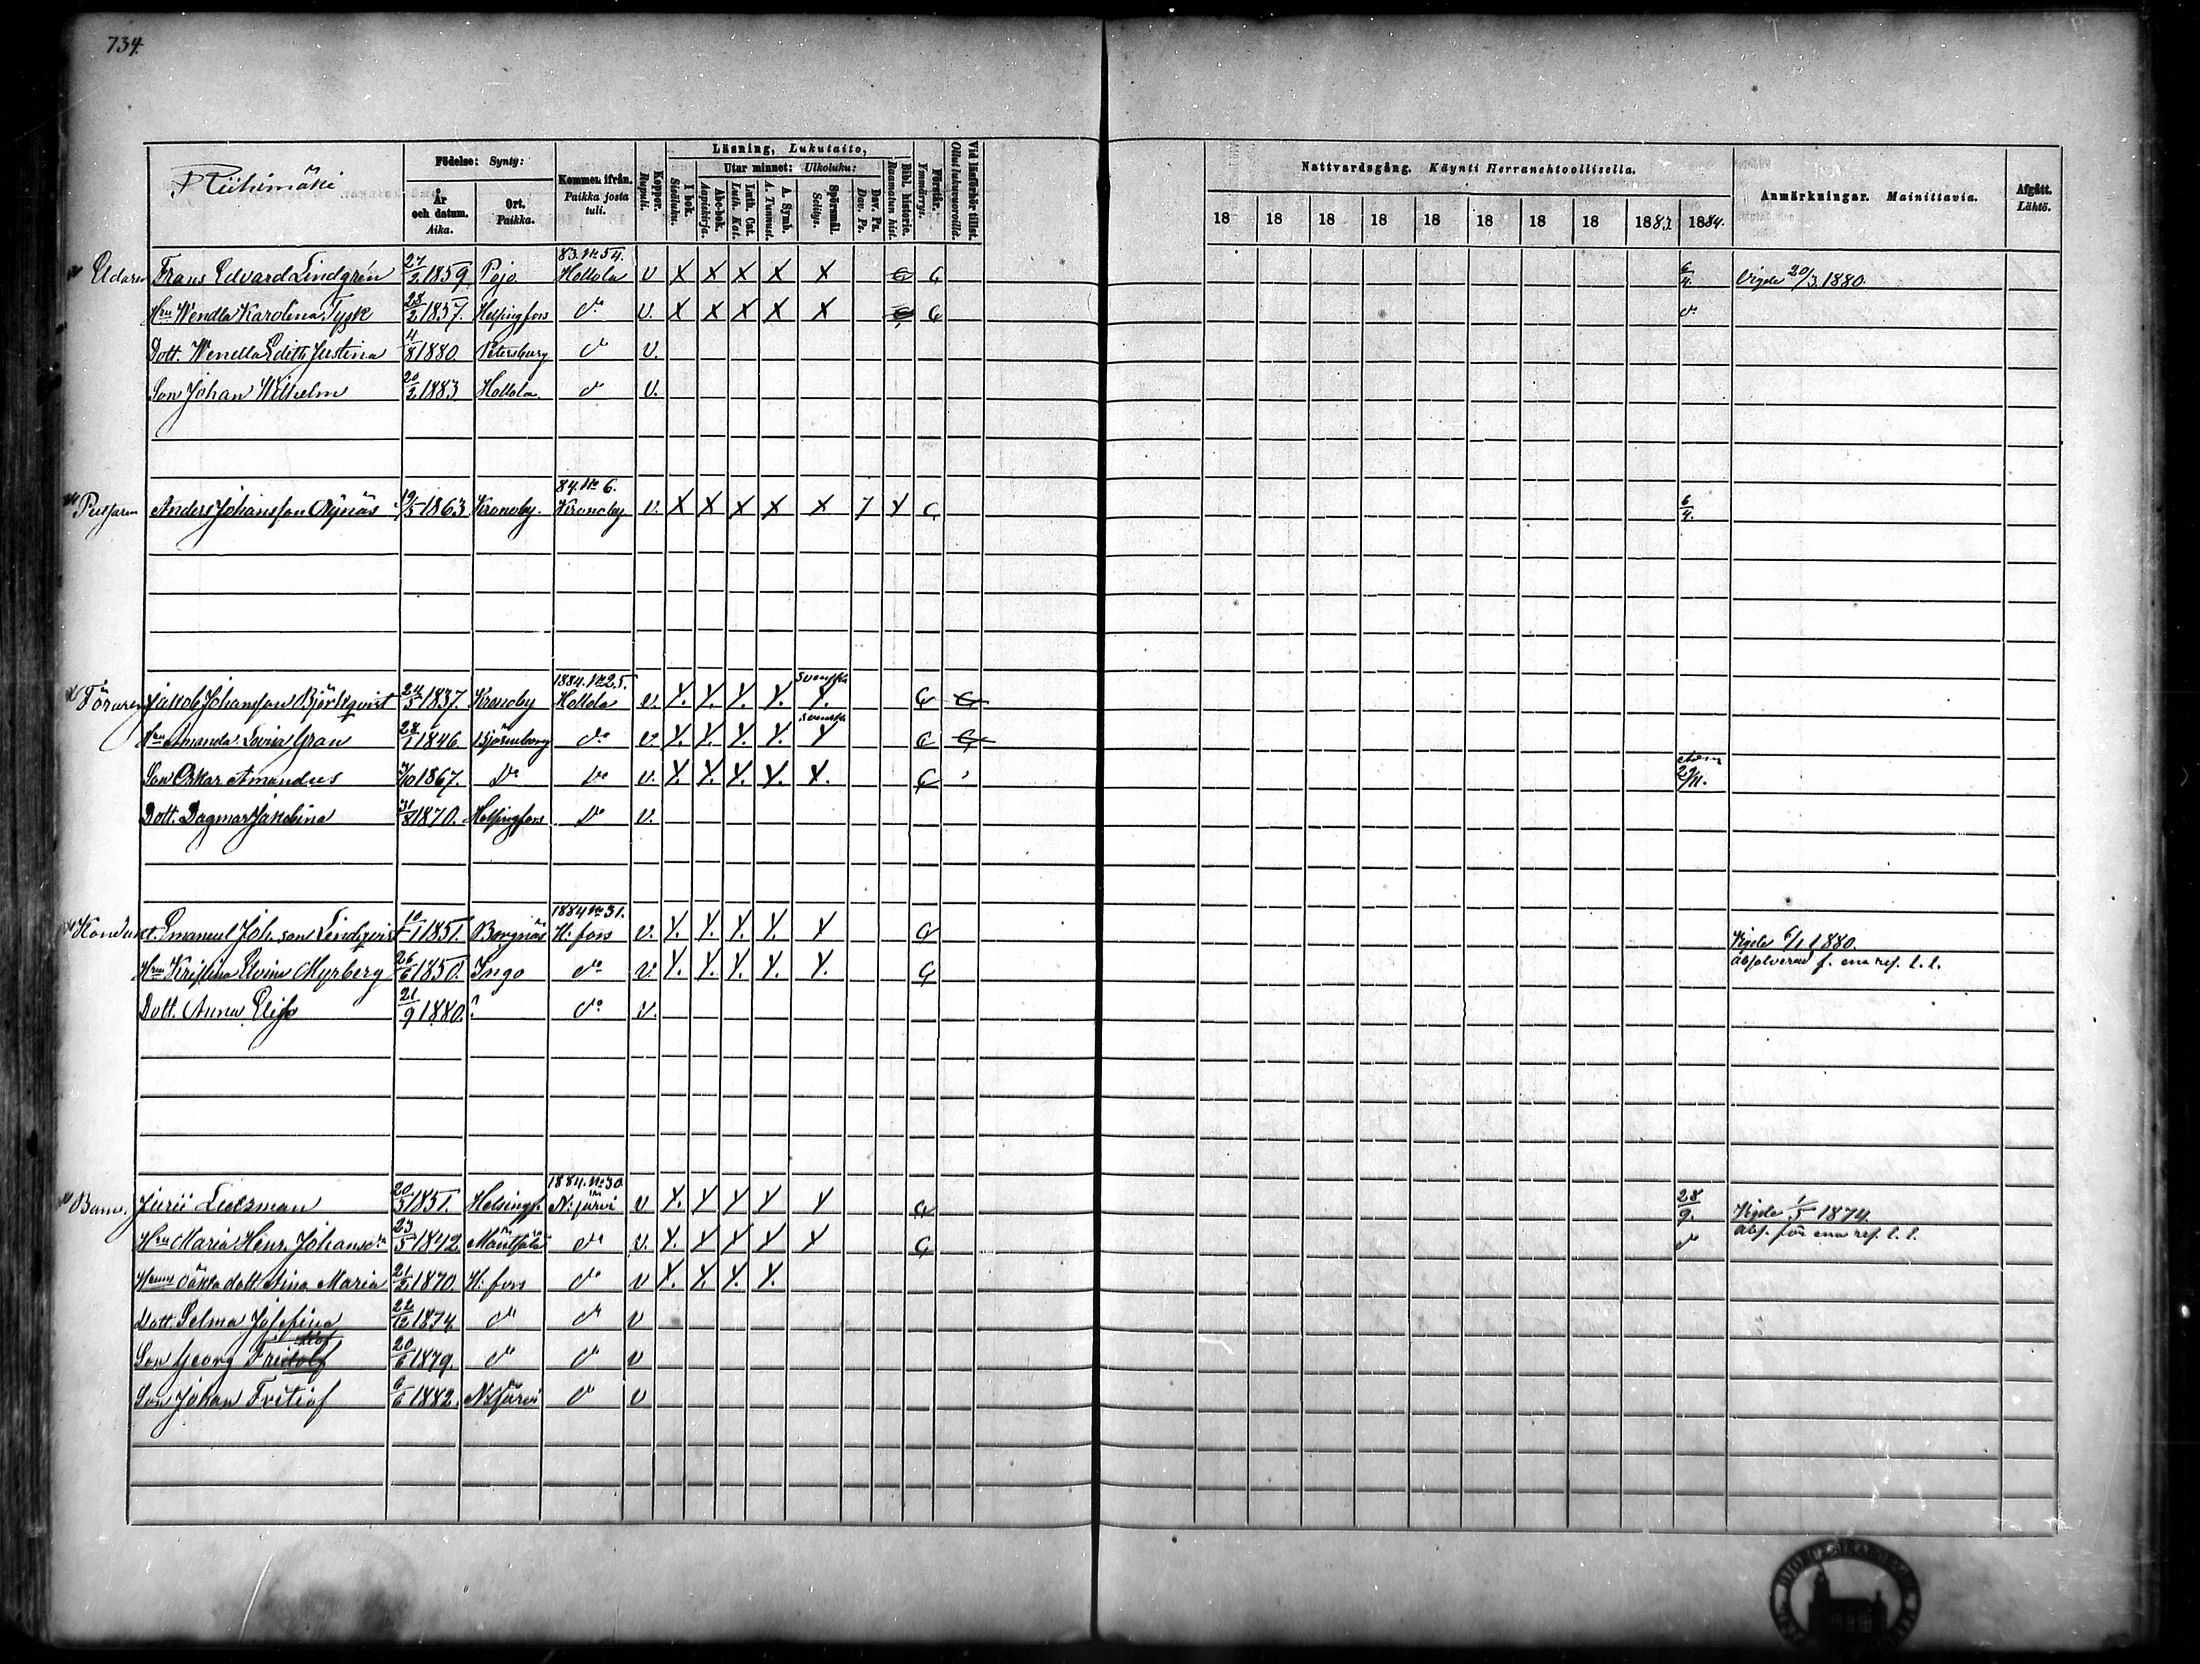 734.
Riihimäki
Födelse: Synty:
År och datum. Aika.
Ort. Paikka.
Kommen ifrån. Paikka josta tuli.
Koppor. Rupuli.
Läsning, Lukutaito,
I bok. Sisäluku.
Utar minnet: Ulkoluku:
Abc-bok. Aapiskirja.
Luth. Cat. Luth. Kat.
A. Symb. A. Tunnust.
Spörsmål. Selitys.
Dav. Ps. Dav. Ps.
Bibl. historie. Raamatun hist.
Förstår. Ymmärrys.
Vid läsförhör tillst. Ollut lukuvuoroilla.
Nattvardsgång. Käynti Herranehtoollisella.
18 18 18 18 18 18 18 18 1883. 1884.
Anmärkningar. Mainittavia.
Afgått. Lähtö.
83. No 54.
Eldaren Frans Edvard Lindgrén 27/2 1859 Pojo. Hollola v X X X X X 6/4. Vigde 20/3 1880.
Hru Wendla Karolina Tysk 28/2 1857. Helsingfors do v. X X X X X do
Dott. Wendla Edith Justina 11/8 1880 Petersburg do v.
Son Johan Wilhelm 20/2 1883 Hollola do v.
84. No 6.
Anders Johansson 19/5 1863 Kronoby. Kronoby v. X X X X X 7 Y 6/4.
1884. No 25. svenska
Föraren Jakob Johansson Björkqvist 24/5 1837. Kronoby Hollola v. Y. Y. Y. Y. Y.
svensk.
Hru Amanda Lovisa Gran 28/1 1846. Björneborg do v. Y. Y. Y. Y. Y
Son Oskar Amandus 1867. Do Do v. Y. Y. Y. Y. Y. 29/11.
Dott. Dagmar Jakobina 31/8 1870. Helsingfors Do v.
1884 No 31.
Kondukt. Emanuel Joh. son Lindqvist 1851. Borgnäs H:fors v. Y. Y. Y. Y. Y Vigde 6/1 1880.
Hru Kristina Elvina Myrberg 26/6 1850. Ingo do v. Y. Y. Y. Y. Y. absolverad f. ena res. l. l.
Dott. Anna Elisa 21/9 1880. ? do v.
1884. No 30.
Banv. Jurii Luksman 20/3 1851. Helsingf. N:järvi v Y. Y Y Y Y 28/9. Vigde 1/5 1874.
Hru Maria Henr. Johansdr 23/5 1842. Mäntsälä do v. Y. Y Y Y Y do abs. för ena res. l. l.
Hennes oäkta dott. Aina Maria 21/2 1870. H:fors do v Y. Y. Y. Y.
Dott. Selma Josefina 22/12 1874. do do v
Son Georg Fridolf 20/6 1879. do do v
Son Johan Fritiof 6/6 1882. N:järvi do v